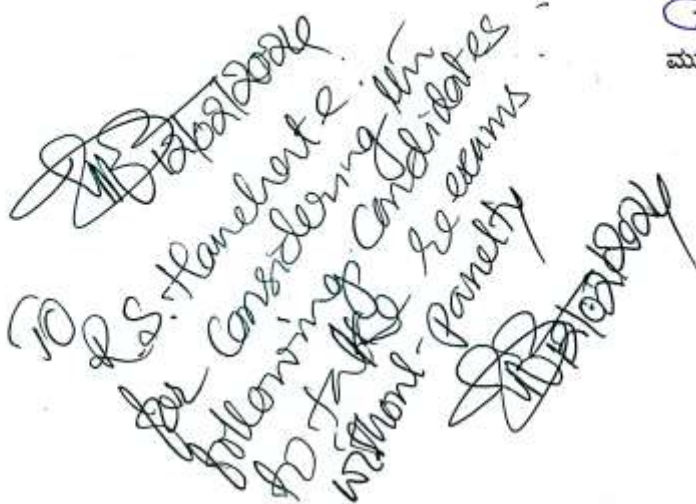 12/02/2024
To
R.S.
for considering
following candidates
to take re exams
without Panelty
12/02/2024